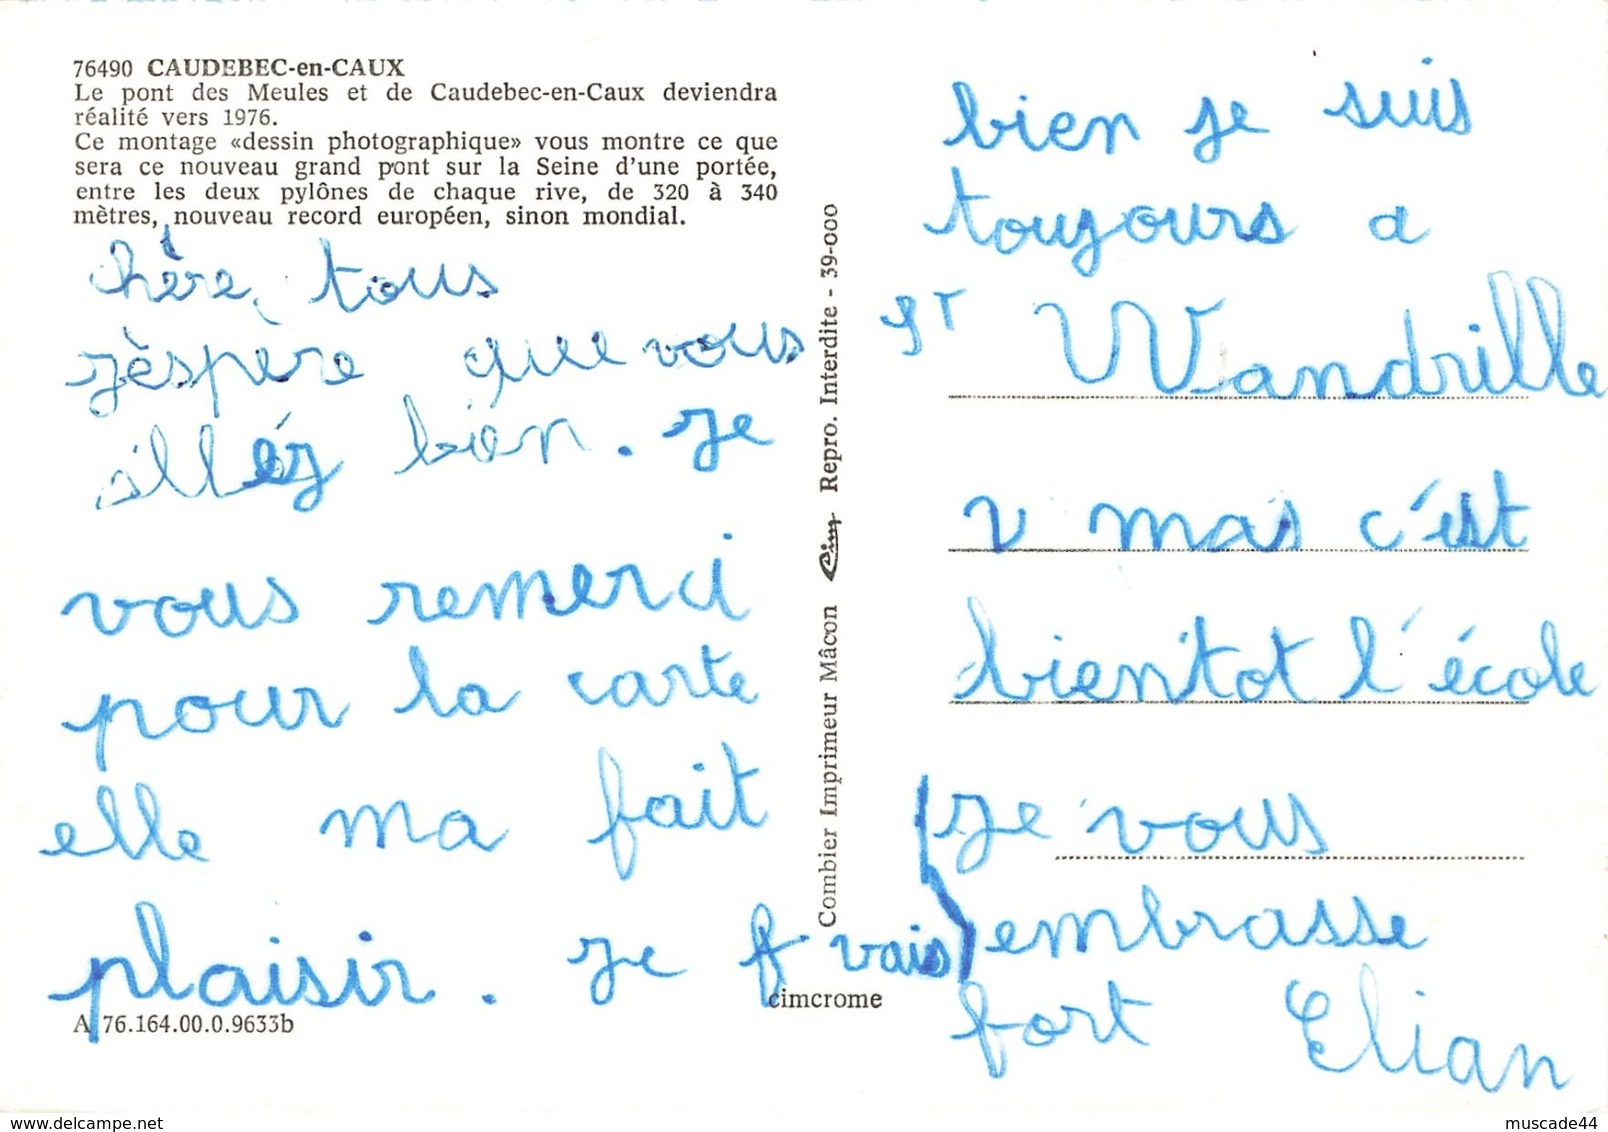 76490 CAUDEBEC-en-CAUX
Le pont des Meules et de Caudebec-en-Caux deviendra
réalité vers 1976.
Ce montage «dessin photographique» vous montre ce que
sera ce nouveau grand pont sur la Seine d'une portée,
entre les deux pylônes de chaque rive, de 320 à 340
mètres, nouveau record européen, sinon mondial.
chère tous
jéspère que vous
alléz bien. Je
vous remerci
pour la carte
elle ma fait
plaisir. Je f vais
A 76.164.00.0.9633b
cimcrome
Combier Imprimeur Mâcon Cim Repro. Interdite - 39-000
bien je suis
toujours a
ST Wandrille
v mas c'est
bientot l'école
Je vous
embrasse
fort Elian
www.delcampe.net
muscade44